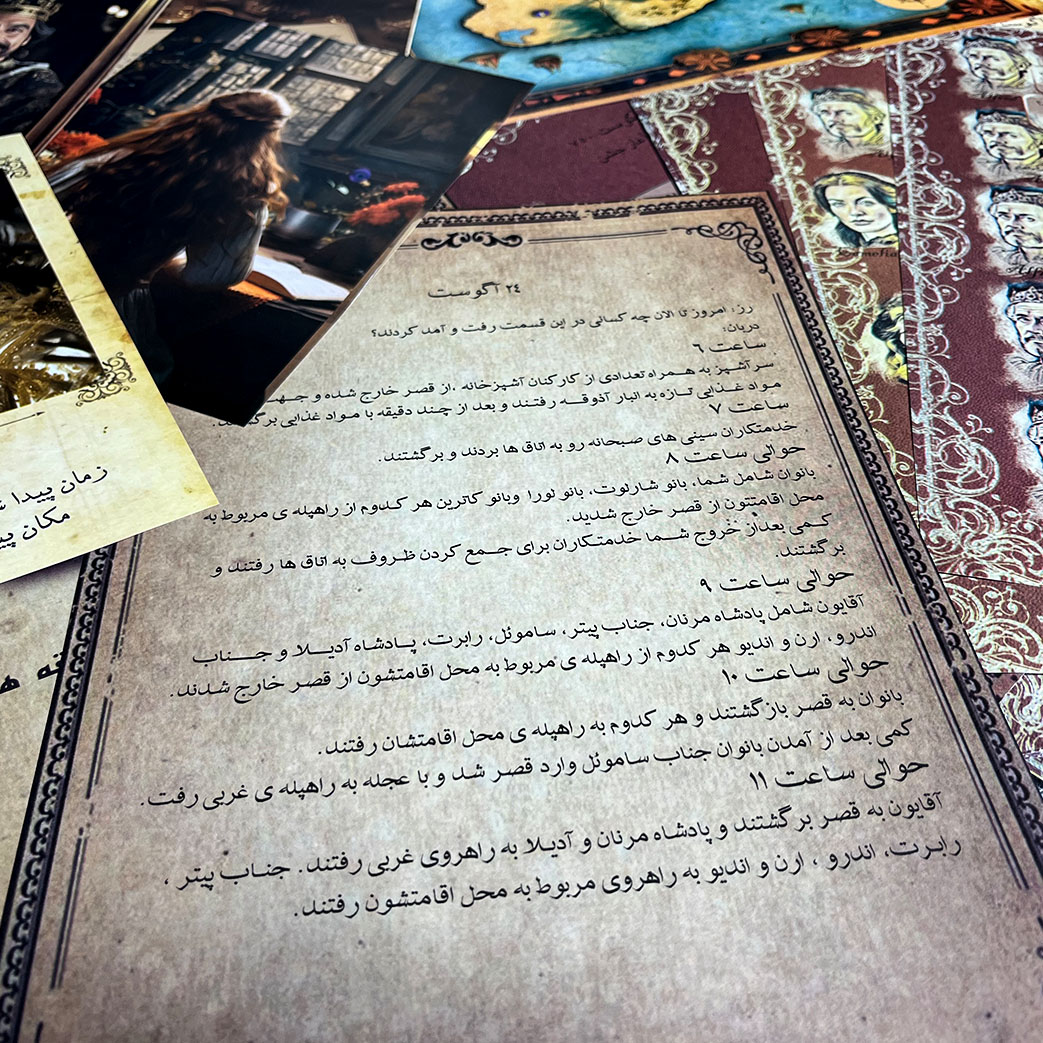 ۲۴ آگوست
رز: امروز تا الان چه کسانی در این قسمت رفت و آمد کردند؟
دربان:
ساعت ۶
سرآشپز به همراه تعدادی از کارکنان آشپزخانه ،از قصر خارج شده و جهت
مواد غذایی تازه به انبار آذوقه رفتند و بعد از چند دقیقه با مواد غذایی برگشتند.
ساعت ۷
خدمتکاران سینی های صبحانه رو به اتاق ها بردند و برگشتند.
حوالی ساعت ۸
بانوان شامل شما، بانو شارلوت، بانو لورا وبانو کاترین هر کدوم از راهپله ی مربوط به
محل اقامتتون از قصر خارج شدید.
کمی بعداز خروج شما خدمتکاران برای جمع کردن ظروف به اتاق ها رفتند و
برگشتند.
حوالی ساعت ۹
آقایون شامل پادشاه مرنان، جناب پیتر، ساموئل، رابرت، پادشاه آدیلا و جناب
اندرو، ارن و اندیو هر کدوم از راهپله ی مربوط به محل اقامتشون از قصر خارج شدند.
حوالی ساعت ۱۰
بانوان به قصر بازگشتند و هر کدوم به راهپله ی محل اقامتشان رفتند.
کمی بعد از آمدن بانوان جناب ساموئل وارد قصر شد و با عجله به راهپله ی غربی رفت.
حوالی ساعت ۱۱
آقایون به قصر برگشتند و پادشاه مرنان و آدیلا به راهروی غربی رفتند. جناب پیتر ،
رابرت، اندرو ، ارن و اندیو به راهروی مربوط به محل اقامتشون رفتند.
زمان پیدا
مکان